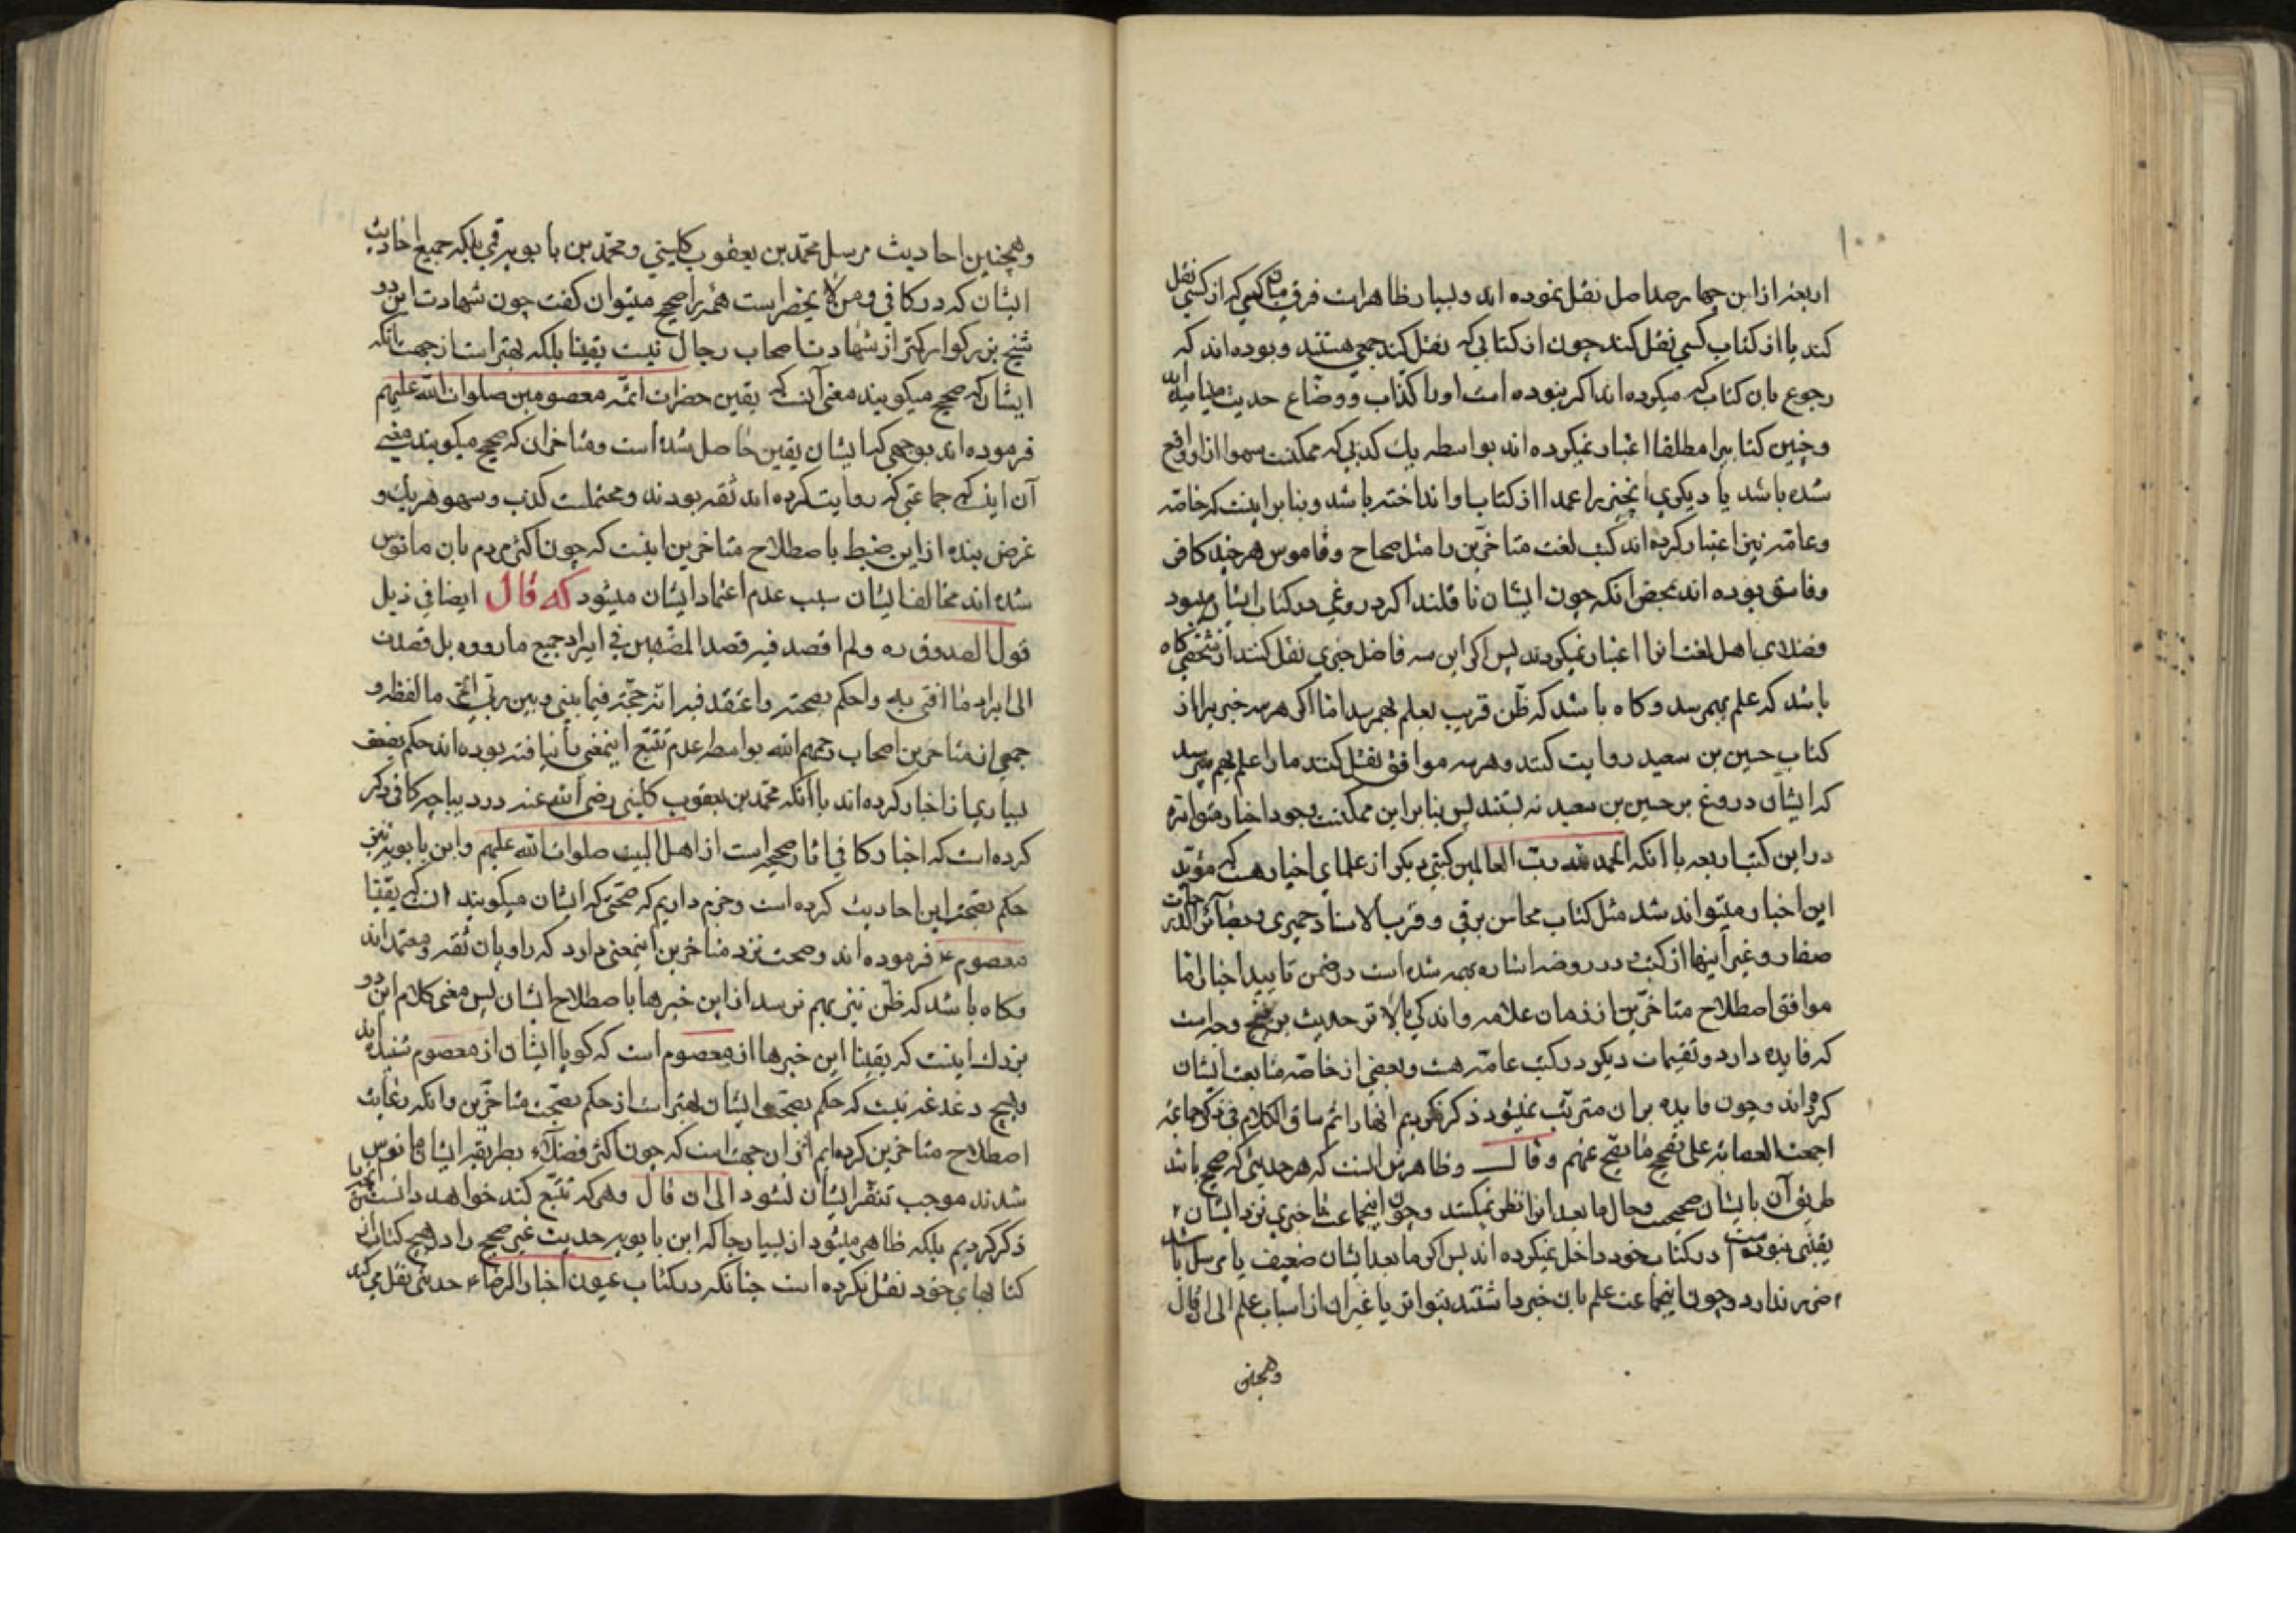 ۱۰۰
اربعه از این چهار صد اصل نقل نموده اند و بسیار ظاهر است فرق میان کسی که از کسی نقل
کند یا از کتاب کسی نقل کند چون از کتابی که نقل کند جمعی هستند و بوده اند که
رجوع بان کتاب که میکرده اند اکر نبوده است او را کذاب و وضاع حدیث مینامیده اند
و چنین کتابیرا مطلقا اعتبار نمیکرده اند بواسطه یك کذبی که ممکنست سهوا از او واقع
شده باشد یا دیکری انچنین را عمدا از کتاب او انداخته باشد و بنا بر اینست که خاصه
و عامه نیز اعتبار کرده اند کتب لغت متاخرین را مثل صحاح و قاموس هر چند کافر
و فاسق بوده اند بمحض انکه چون ایشان ناقلند اکر دروغی در کتاب ایشان میبود
فضلای اهل لغت انرا اعتبار نمیکردند پس اکر این سه فاضل خبری نقل کنند از شخصی کاه
باشد که علم بهم رسد و کاه باشد که ظن قریب بعلم بهم رسد اما اکر هر سه خبر را از
کتاب حسین بن سعید روایت کنند و هر سه موافق نقل کنند ما را علم بهم میرسد
که ایشان دروغ بر حسین بن سعید نه بستند پس بنا بر این ممکنست وجود اخبار متواتره
در این کتب اربعه با انکه الحمد لله رب العالمین کتبی دیکر از علمای اخیار هست که مؤید
این اخبار میتواند شد مثل کتاب محاسن برقی و قرب الاسناد حمیری و بصائر الدرجات
صفار و غیر اینها از کتب و در روضه اشاره بهمه شده است در ضمن تایید اخبار اما
موافق اصطلاح متاخرین از زمان علامه و اندکی بالا تر حدیث بر پنج وجه است
که فایده دارد و تقسیمات دیکر در کتب عامه هست و بعضی از خاصه متابعت ایشان
کرده اند و چون فایده بر ان مترتب نمیشود ذکر نکردیم انها را ثم ساق الکلام فی ذکر جماعة
اجمعت العصابه علی تصحیح ما یصح عنهم و قال و ظاهرش انست که هر حدیثی که صحیح باشد
طریق آن بایشان صحیحست و حال ما بعد انرا نظر نمیکنند و چون اینجماعت تا خبری نزد ایشان
یقینی نبوده است در کتاب خود داخل نمیکرده اند پس اکر ما بعد ایشان ضعیف یا مرسل باشد
ضرر ندارد و چون اینجماعت علم بان خبر داشتند بتواتر یا غیر ان از اسباب علم الی ان قال
وهمچنین
۱۰۱
وهمچنین احادیث مرسل محمد بن یعقوب کلینی و محمد بن بابویه قمی بلکه جمیع احادیث
ایشان که در کافی و من لا یحضر است همه را صحیح میتوان کفت چون شهادت این دو
شیخ بزرکوار کمتر از شهادت اصحاب رجال نیست یقینا بلکه بهتر است از جهت انکه
ایشان که صحیح میکویند معنی آنست که یقین حضرات ائمه معصومین صلوات الله علیهم
فرموده اند بوجهی که ایشان یقین حاصل شده است و متاخران که صحیح میکویند معنی
آن اینست که جماعتی که روایت کرده اند ثقه بودند و محتملست کذب و سهو هر یك و
غرض بنده از این ضبط باصطلاح متاخرین اینست که چون اکثر مردم بان مانوس
شده اند مخالفت ایشان سبب عدم اعتماد ایشان میشود که قال ایضا فی ذیل
قول الصدوق ره ولم اقصد فیه قصد المصنفین فی ایراد جمیع ما رووه بل قصدت
الی ایراد ما افتی به واحکم بصحته واعتقد فیه انه حجة فیما بینی وبین ربی اعنی ما لفظه و
جمعی از متاخرین اصحاب رحمهم الله بواسطه عدم تتبع اینمعنی را نیافته بوده اند حکم بضعف
بسیاری از اخبار کرده اند با آنکه محمد بن یعقوب کلینی رضی الله عنه در دیباجه کافی ذکر
کرده است که اخبار کافی اثار صحیحه است از اهل البیت صلوات الله علیهم و ابن بابویه نیز
حکم بصحت این احادیث کرده است و جزم داریم که صحتی که ایشان میکویند انست که یقینا
معصوم ع فرموده اند و صحت نزد متاخرین اینمعنی دارد که راویان ثقه و معتمد اند
و کاه باشد که ظن نیز بهم نرسد از این خبرها باصطلاح ایشان پس معنی کلام این دو
بزرك اینست که یقینا این خبرها از معصوم است که کویا ایشان از معصوم شنیده اند
و هیچ دغدغه نیست که حکم بصحت ایشان بهتر است از حکم بصحت متاخرین و انکه رعایت
اصطلاح متاخرین کرده ایم از ان جهت است که چون اکثر فضلاء بطریقه ایشان مانوس
شدند موجب تنفر ایشان نشود الی ان قال و هر که تتبع کند خواهد دانست انچه ما
ذکر کردیم بلکه ظاهر میشود از بسیار جا که ابن بابویه حدیث غیر صحیح را در هیچ کتاب از
کتابهای خود نقل نکرده است چنانکه در کتاب عیون اخبار الرضا ع حدیثی نقل میکند